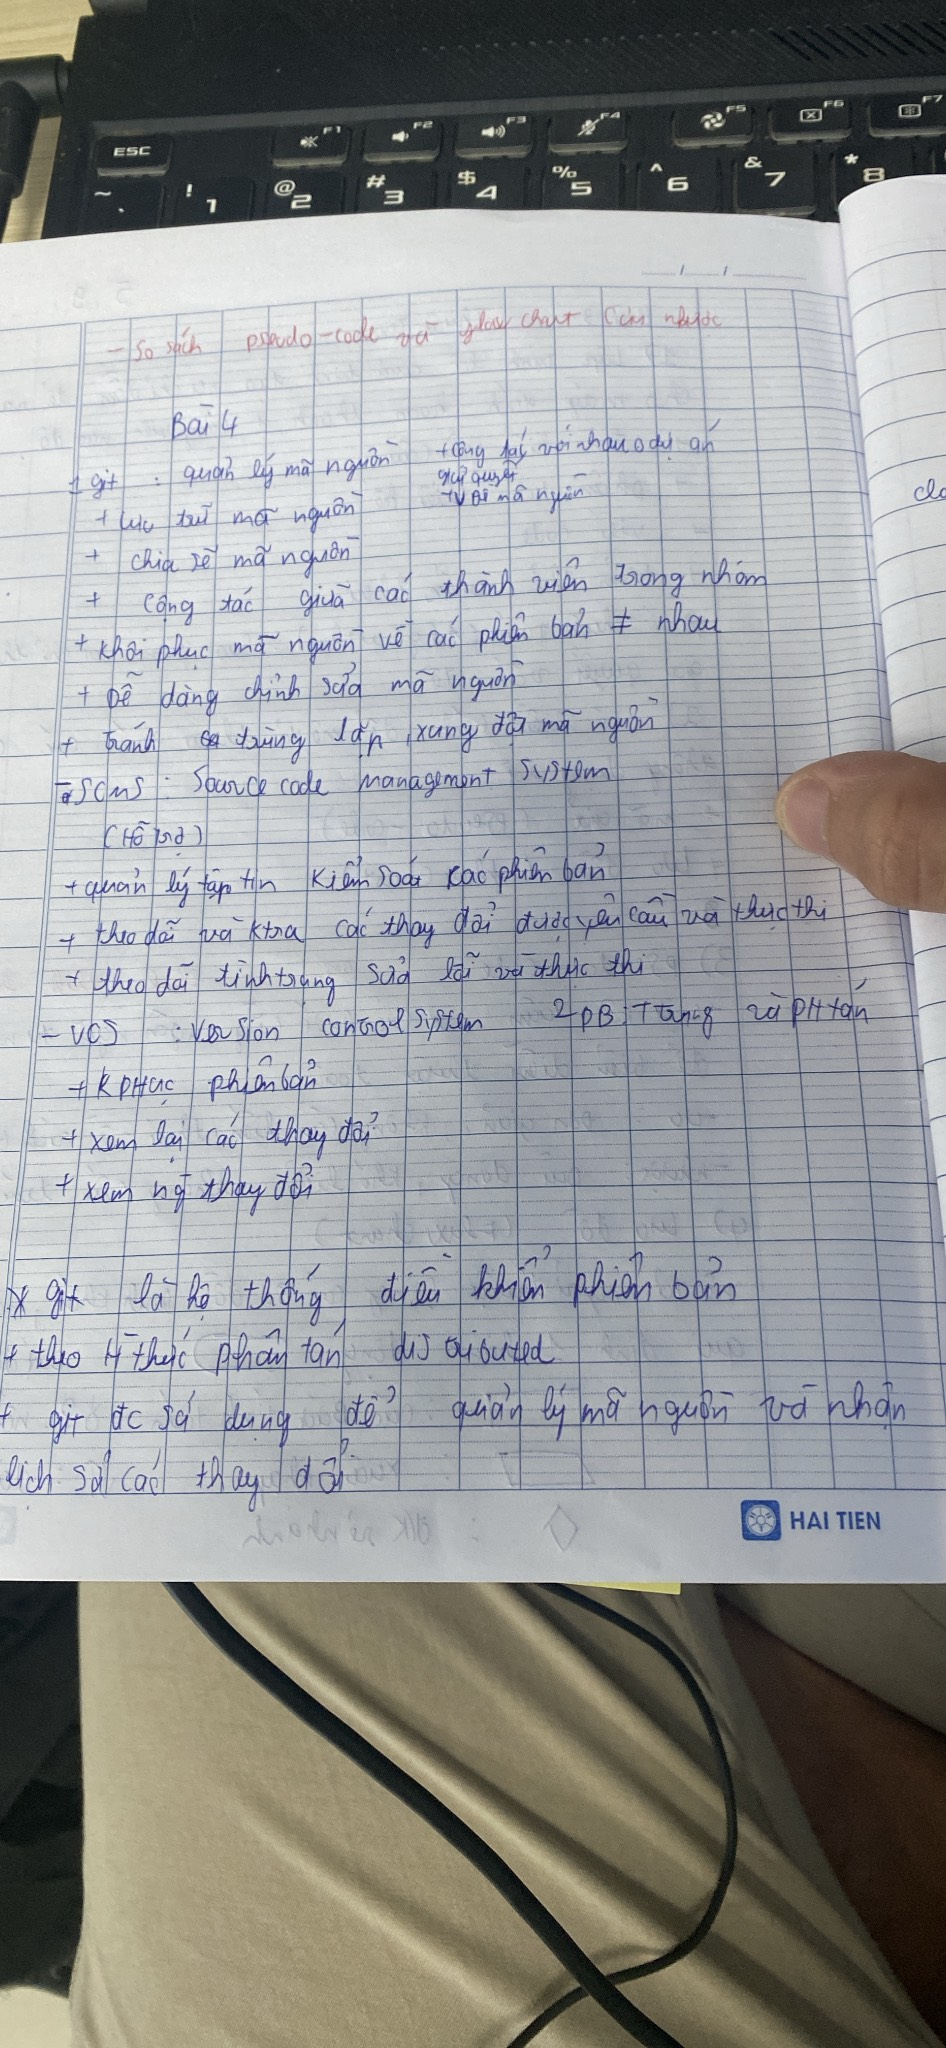 ESC F1 F2 F3 F4 F5 F6 F7
~ ! 1 @ 2 # 3 $ 4 % 5 ^ 6 & 7 * 8
- So sách pseudo-code và flow chart
Bài 4
1 git : quản lý mã nguồn + công tác với nhau ở dự án
giải quyết
+ VĐề mã nguồn
+ lưu trữ mã nguồn
+ chia sẽ mã nguồn
+ cộng tác giữa các thành viên trong nhóm
+ khôi phục mã nguồn về các phiên bản ≠ nhau
+ Dễ dàng chỉnh sửa mã nguồn
+ tránh trùng lặp, xung đột mã nguồn
- SCMS : Source code management system
(Hỗ trợ)
+ quản lý tập tin kiểm soát các phiên bản
+ theo dõi và ktra các thay đổi được yêu cầu và thực thi
+ theo dõi tình trạng sửa lỗi và thực thi
- VCS : Version control system 2 PB: T trung và PH tán
+ K PHục phiên bản
+ xem lại các thay đổi
+ xem ng thay đổi
* git là hệ thống điều khiển phiên bản
+ theo H thức phân tán distributed
+ git đc sử dụng để quản lý mã nguồn và nhận
lịch sử các thay đổi
HAI TIEN